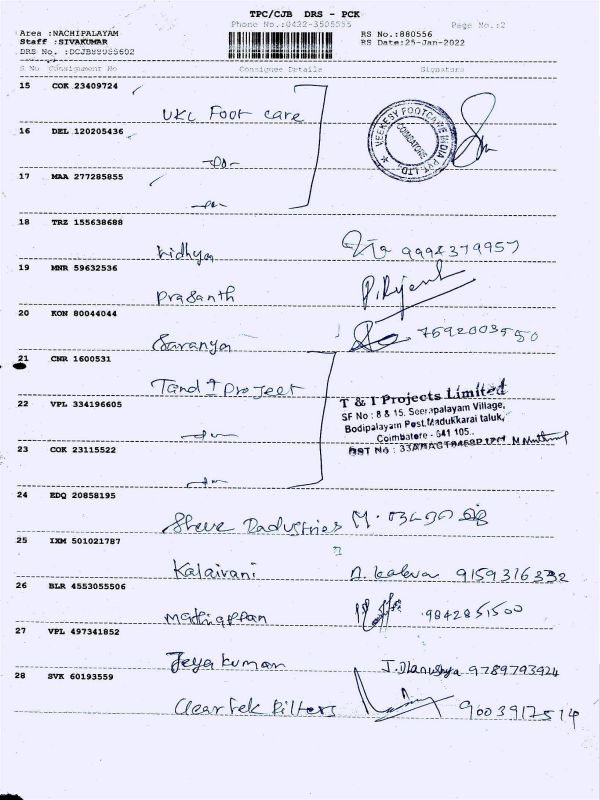 TPC/CJB DRS - PCK
Phone No.:0422-3505555
Page No.:2
Area :NACHIPALAYAM
Staff :SIVAKUMAR
DRS No. :DCJB88055602
RS No.:880556
RS Date:25-Jan-2022
S No Consignment No Consignee Details Signature
15 COK 23409724
UKL Foot care
VEEKESY FOOTCARE INDIA PVT. LTD.
COIMBATORE
16 DEL 120205436
-do-
17 MAA 277285855
-do-
18 TRZ 155638688
Vidhya 9994379957
19 MNR 59632536
Prasanth
20 KON 80044044
Saranya
21 CNR 1600531
T and I Project
T & I Projects Limited
SF No : 8 & 15, Seerapalayam Village,
Bodipalayam Post, Madukkarai taluk,
Coimbatore - 641 105.
22 VPL 334196605
-do-
23 COK 23115522
GST No :
-do-
24 EDQ 20858195
25 IXM 501021787
Kalaivani 9159316332
26 BLR 4553055506
Madhiappan 9842851500
27 VPL 497341852
Jeyakumar J. Dhanushya 9789793924
28 SVK 60193559
Cleartek Filters 9003917514